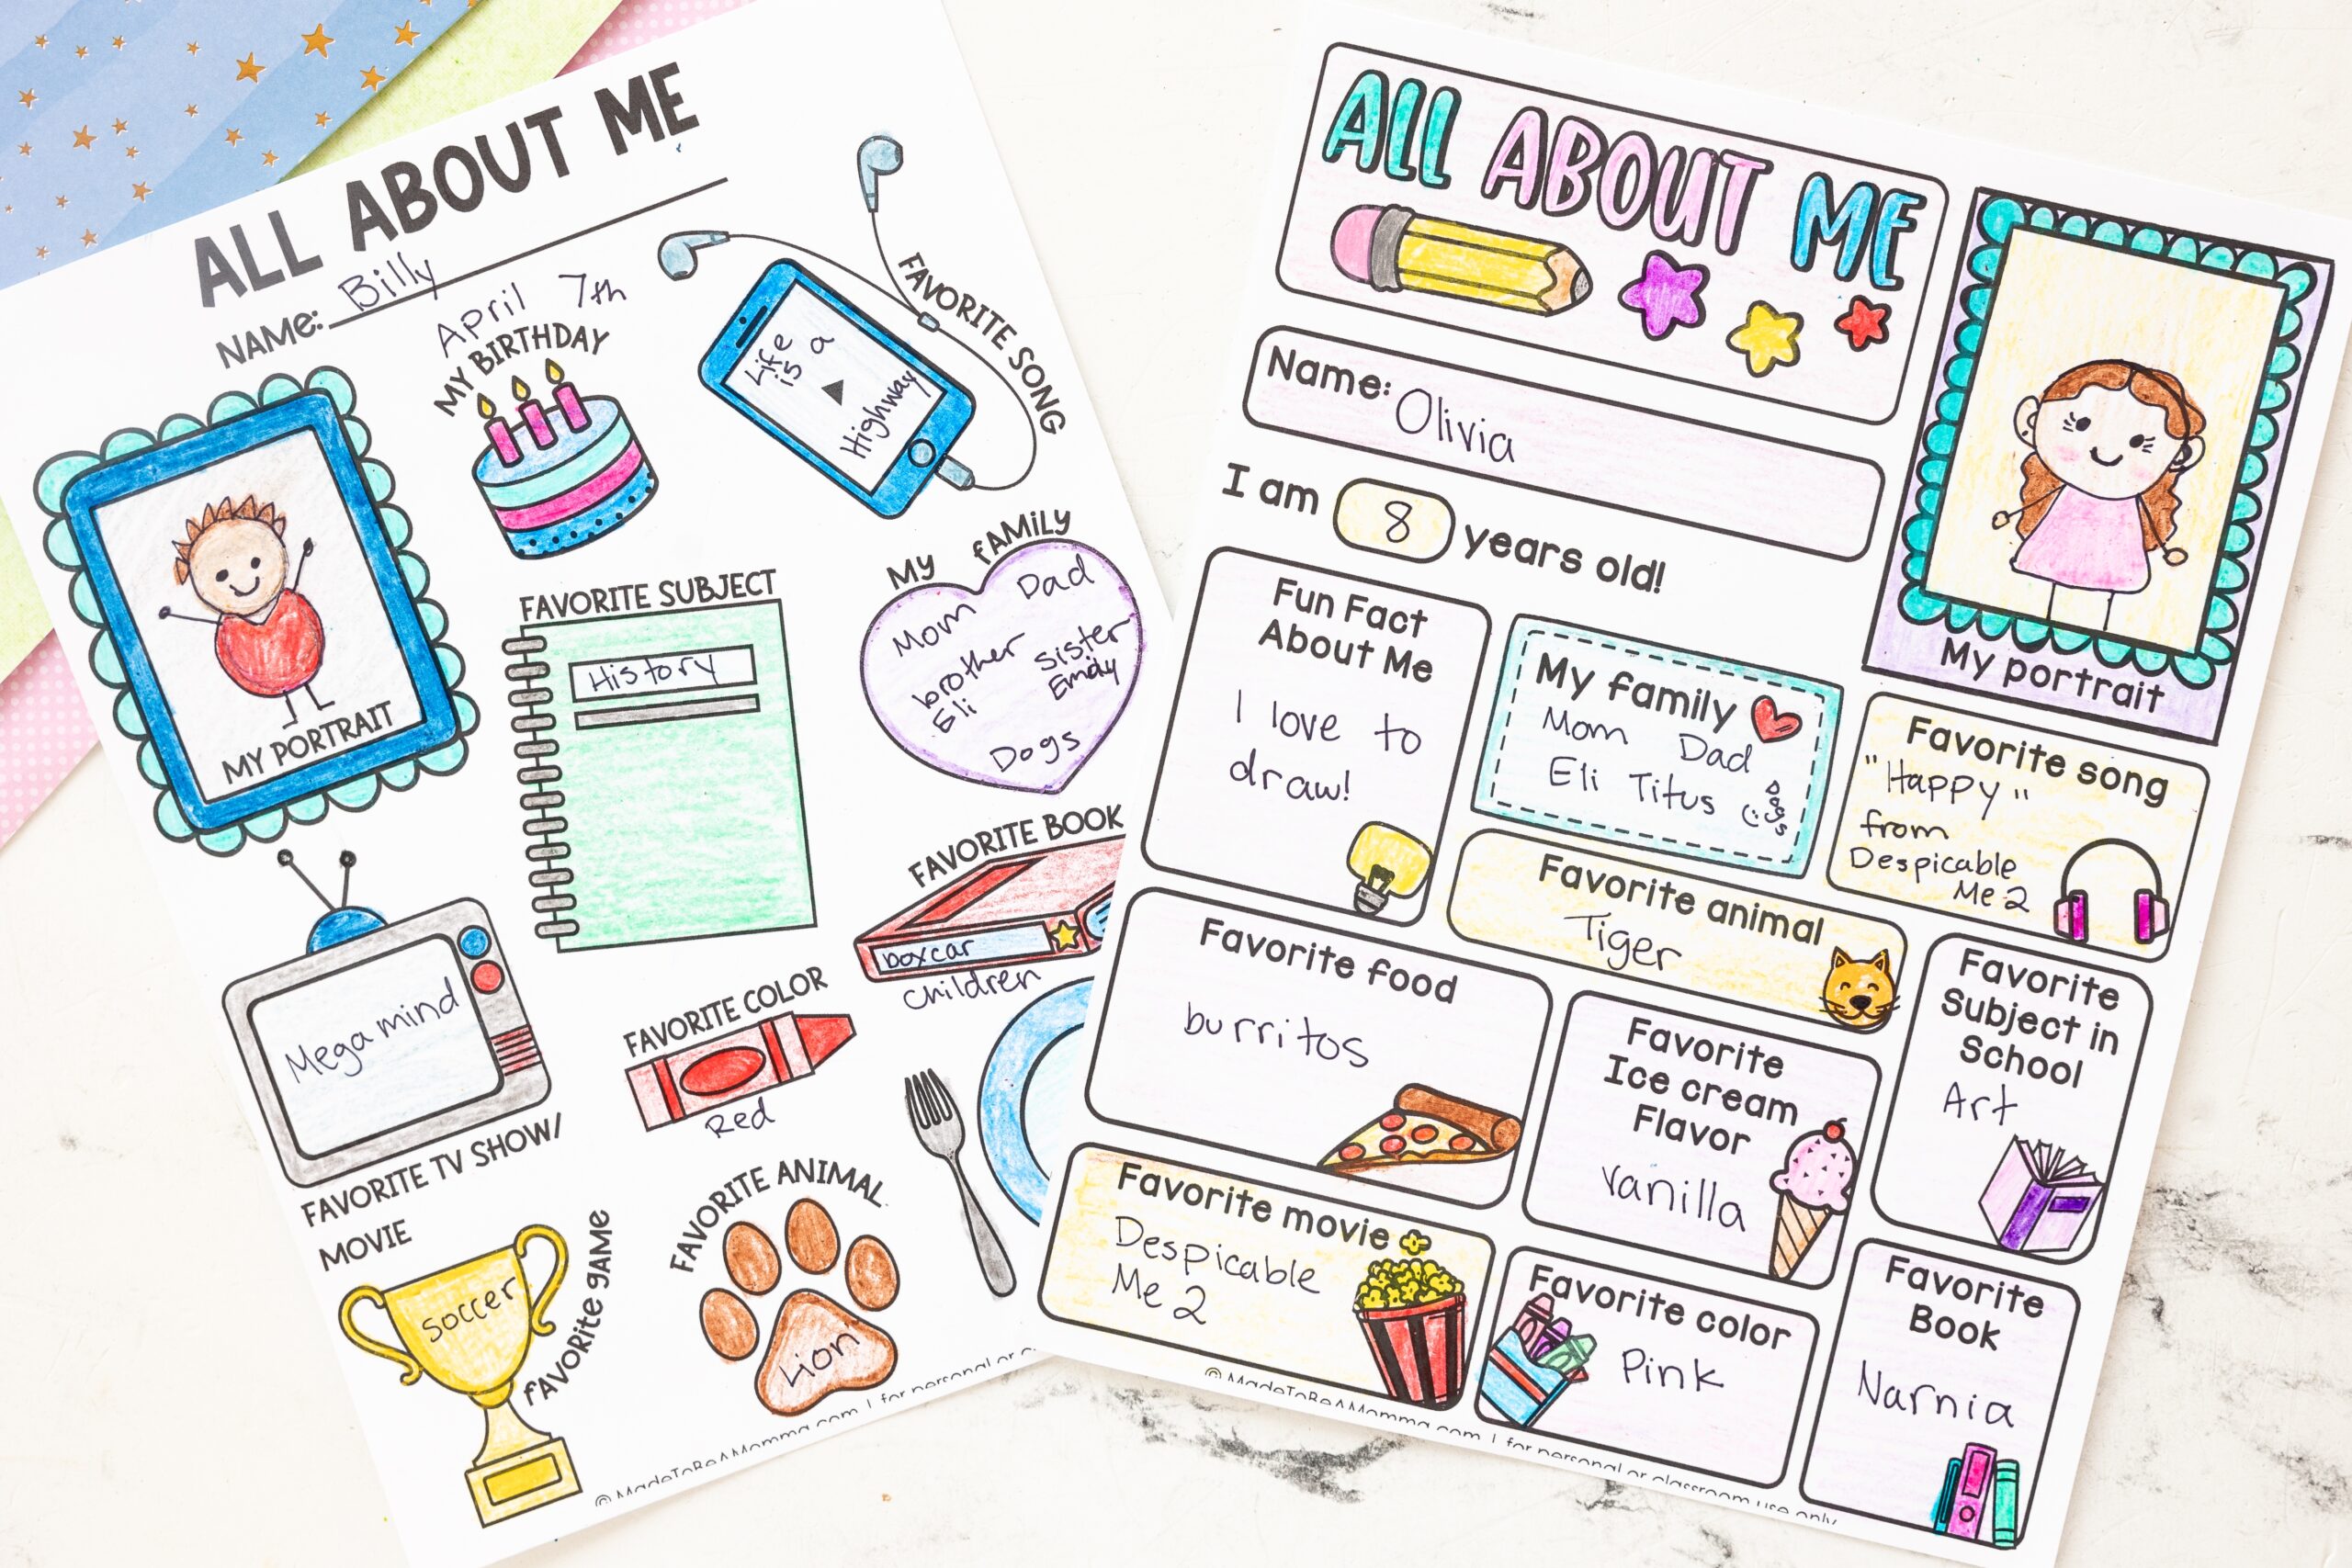 ALL ABOUT ME
NAMe: Billy
April 7th
MY BIRTHDAY
FAVORITE SONG
Life
is a
Highway
MY PORTRAIT
FAVORITE SUBJECT
History
MY fAMILY
Mom Dad
brother sister
Eli Emily
Dogs
FAVORITE BOOK
boxcar
children
Megamind
FAVORITE TV SHOW/
MOVIE
FAVORITE COLOR
Red
FAVORITE ANIMAL
Lion
soccer
fAVORITe gAME
© MadeToBeAMomma.com | for personal or
ALL ABOUT ME
Name: Olivia
I am 8 years old!
My portrait
Fun Fact
About Me
I love to
draw!
My family
Mom Dad
Eli Titus Dogs
Favorite song
"Happy"
from
Despicable
Me 2
Favorite animal
Tiger
Favorite food
burritos
Favorite
Ice cream
Flavor
vanilla
Favorite
Subject in
School
Art
Favorite movie
Despicable
Me 2
Favorite color
Pink
Favorite
Book
Narnia
© MadeToBeAMomma.com | for personal or classroom use only